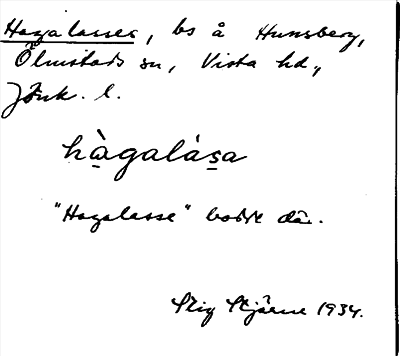 Hagalasses, bs å Hunsberg,
Ölmstads sn, Vista hd,
Jönk. l.
hàgalása
"Hagalasse" bodde där.
Stig Stjärne 1934.